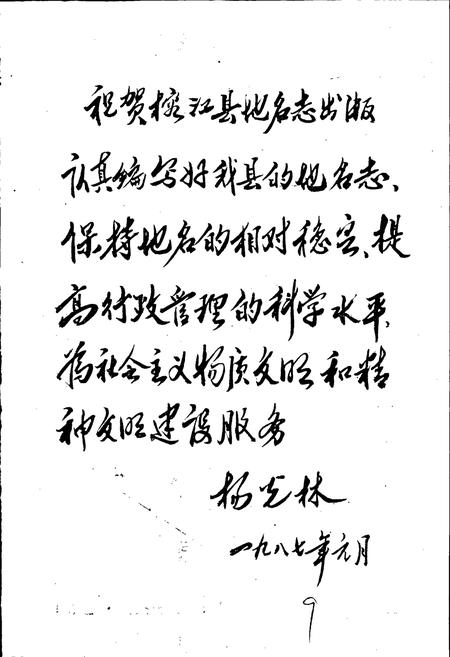 祝贺榕江县地名志出版
认真编写好我县的地名志、
保持地名的相对稳定、提
高行政管理的科学水平，
为社会主义物质文明和精
神文明建设服务
杨光林
一九八七年元月
9